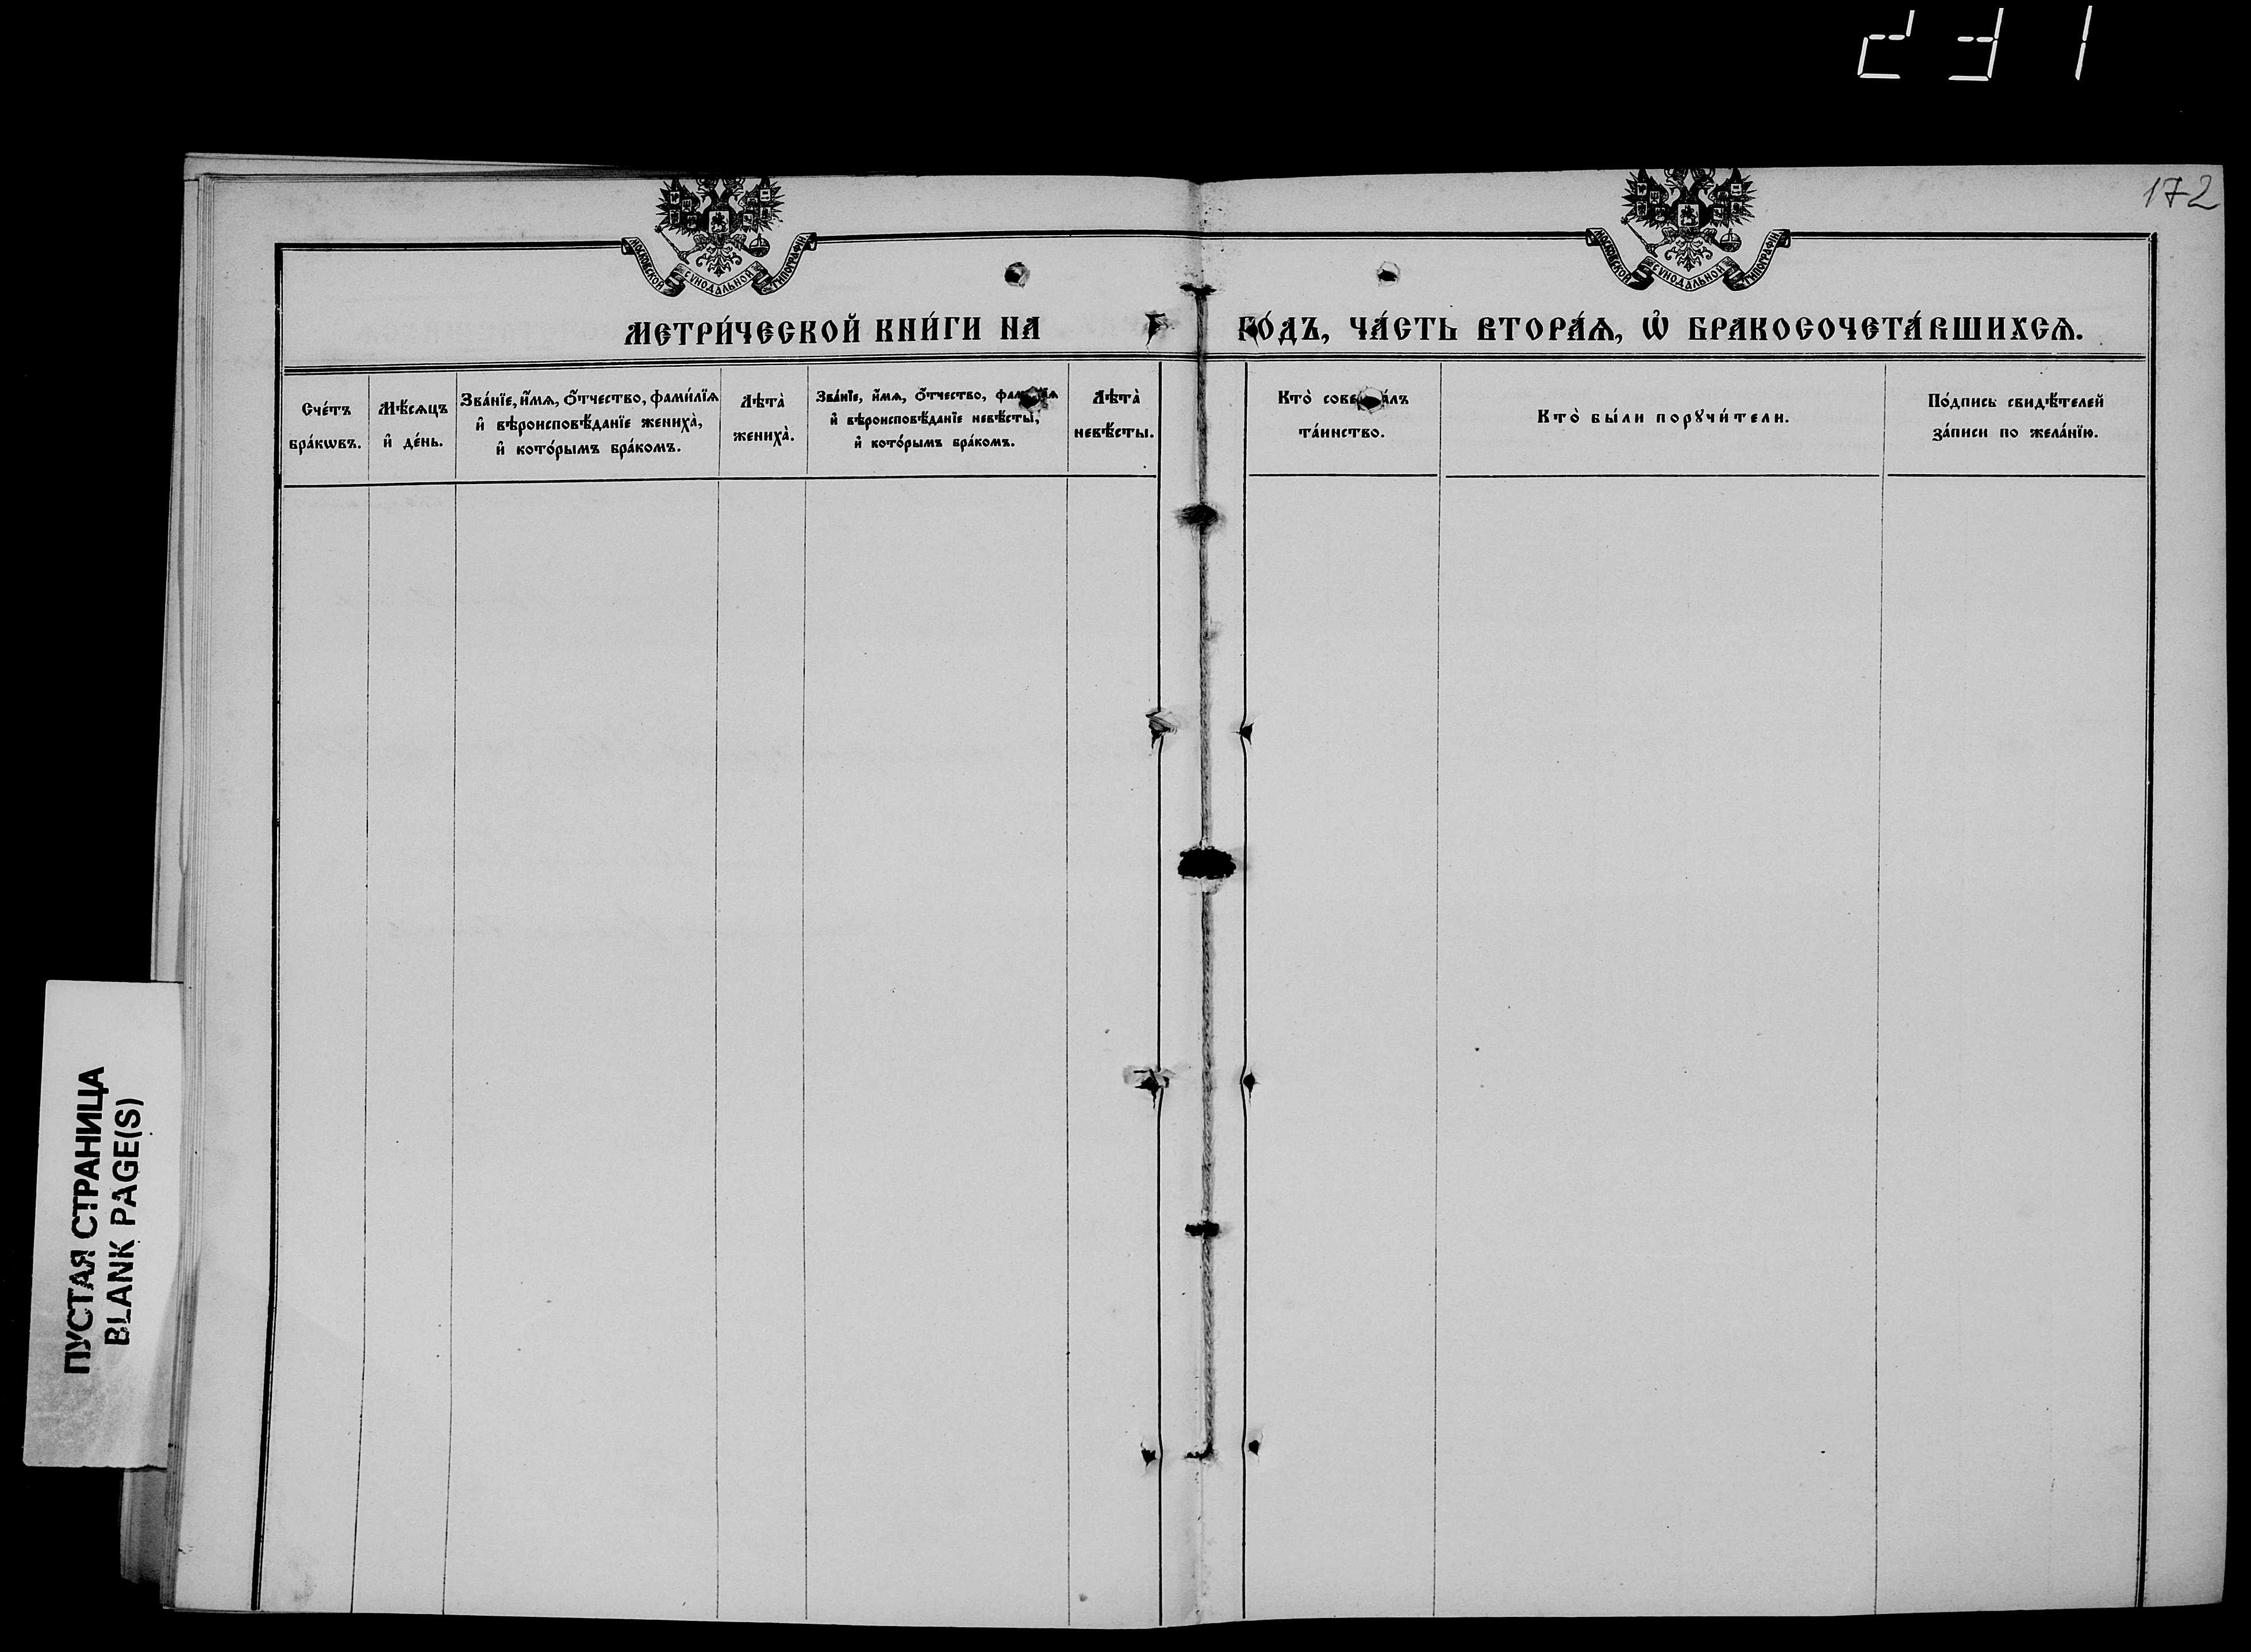 231
172
МОСКОВСКОЙ СУНОДАЛЬНОЙ ТИПОГРАФІИ
МОСКОВСКОЙ СУНОДАЛЬНОЙ ТИПОГРАФІИ
МЕТРИ́ЧЕСКОЙ КНИ́ГИ НА ГО́ДЪ, ЧА́СТЬ ВТОРА́Ѧ, Ѡ҆ БРАКОСОЧЕТА́ВШИХСѦ.
Сче́тъ
бра́кѡвъ.
Мѣ́сѧцъ
и҆ де́нь.
Зва́нїе, и҆́мѧ, ѻ҆́тчество, фами́лїѧ
и҆ вѣроисповѣ́данїе жениха̀,
и҆ кото́рымъ бра́комъ.
Лѣта̀
жениха̀.
Зва́нїе, и҆́мѧ, ѻ҆́тчество, фами́лїѧ
и҆ вѣроисповѣ́данїе невѣ́сты,
и҆ кото́рымъ бра́комъ.
Лѣта̀
невѣ́сты.
Кто̀ соверша́лъ
та́инство.
Кто̀ бы́ли порꙋчи́тели.
По́дпись свидѣ́телей
за́писи по жела́нїю.
ПУСТАЯ СТРАНИЦА
BLANK PAGE(S)